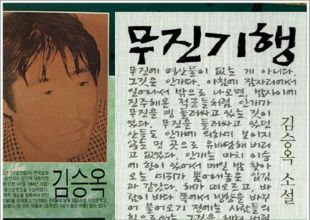 무진기행
무진에 명산물이 없는 게 아니다.
그것은 안개다. 아침에 잠자리에서
일어나서 밖으로 나오면, 밤사이에
진주해온 적군들처럼 안개가
무진을 삥 둘러싸고 있는 것이
었다. 무진을 둘러싸고 있던
산들도 안개에 의하여 보이지
않는 먼 곳으로 유배당해 버리
고 없었다. 안개는 마치 이승
에 한이 있어서 매일 밤 찾아
오는 여귀가 뿜어내놓은 입김
과 같았다. 해가 떠오르고, 바
람이 바다 쪽에서 방향을 바꾸
어 불어오기 전에는 사람들의
힘으로써는 그것을 헤쳐
김승옥 소설
김승옥